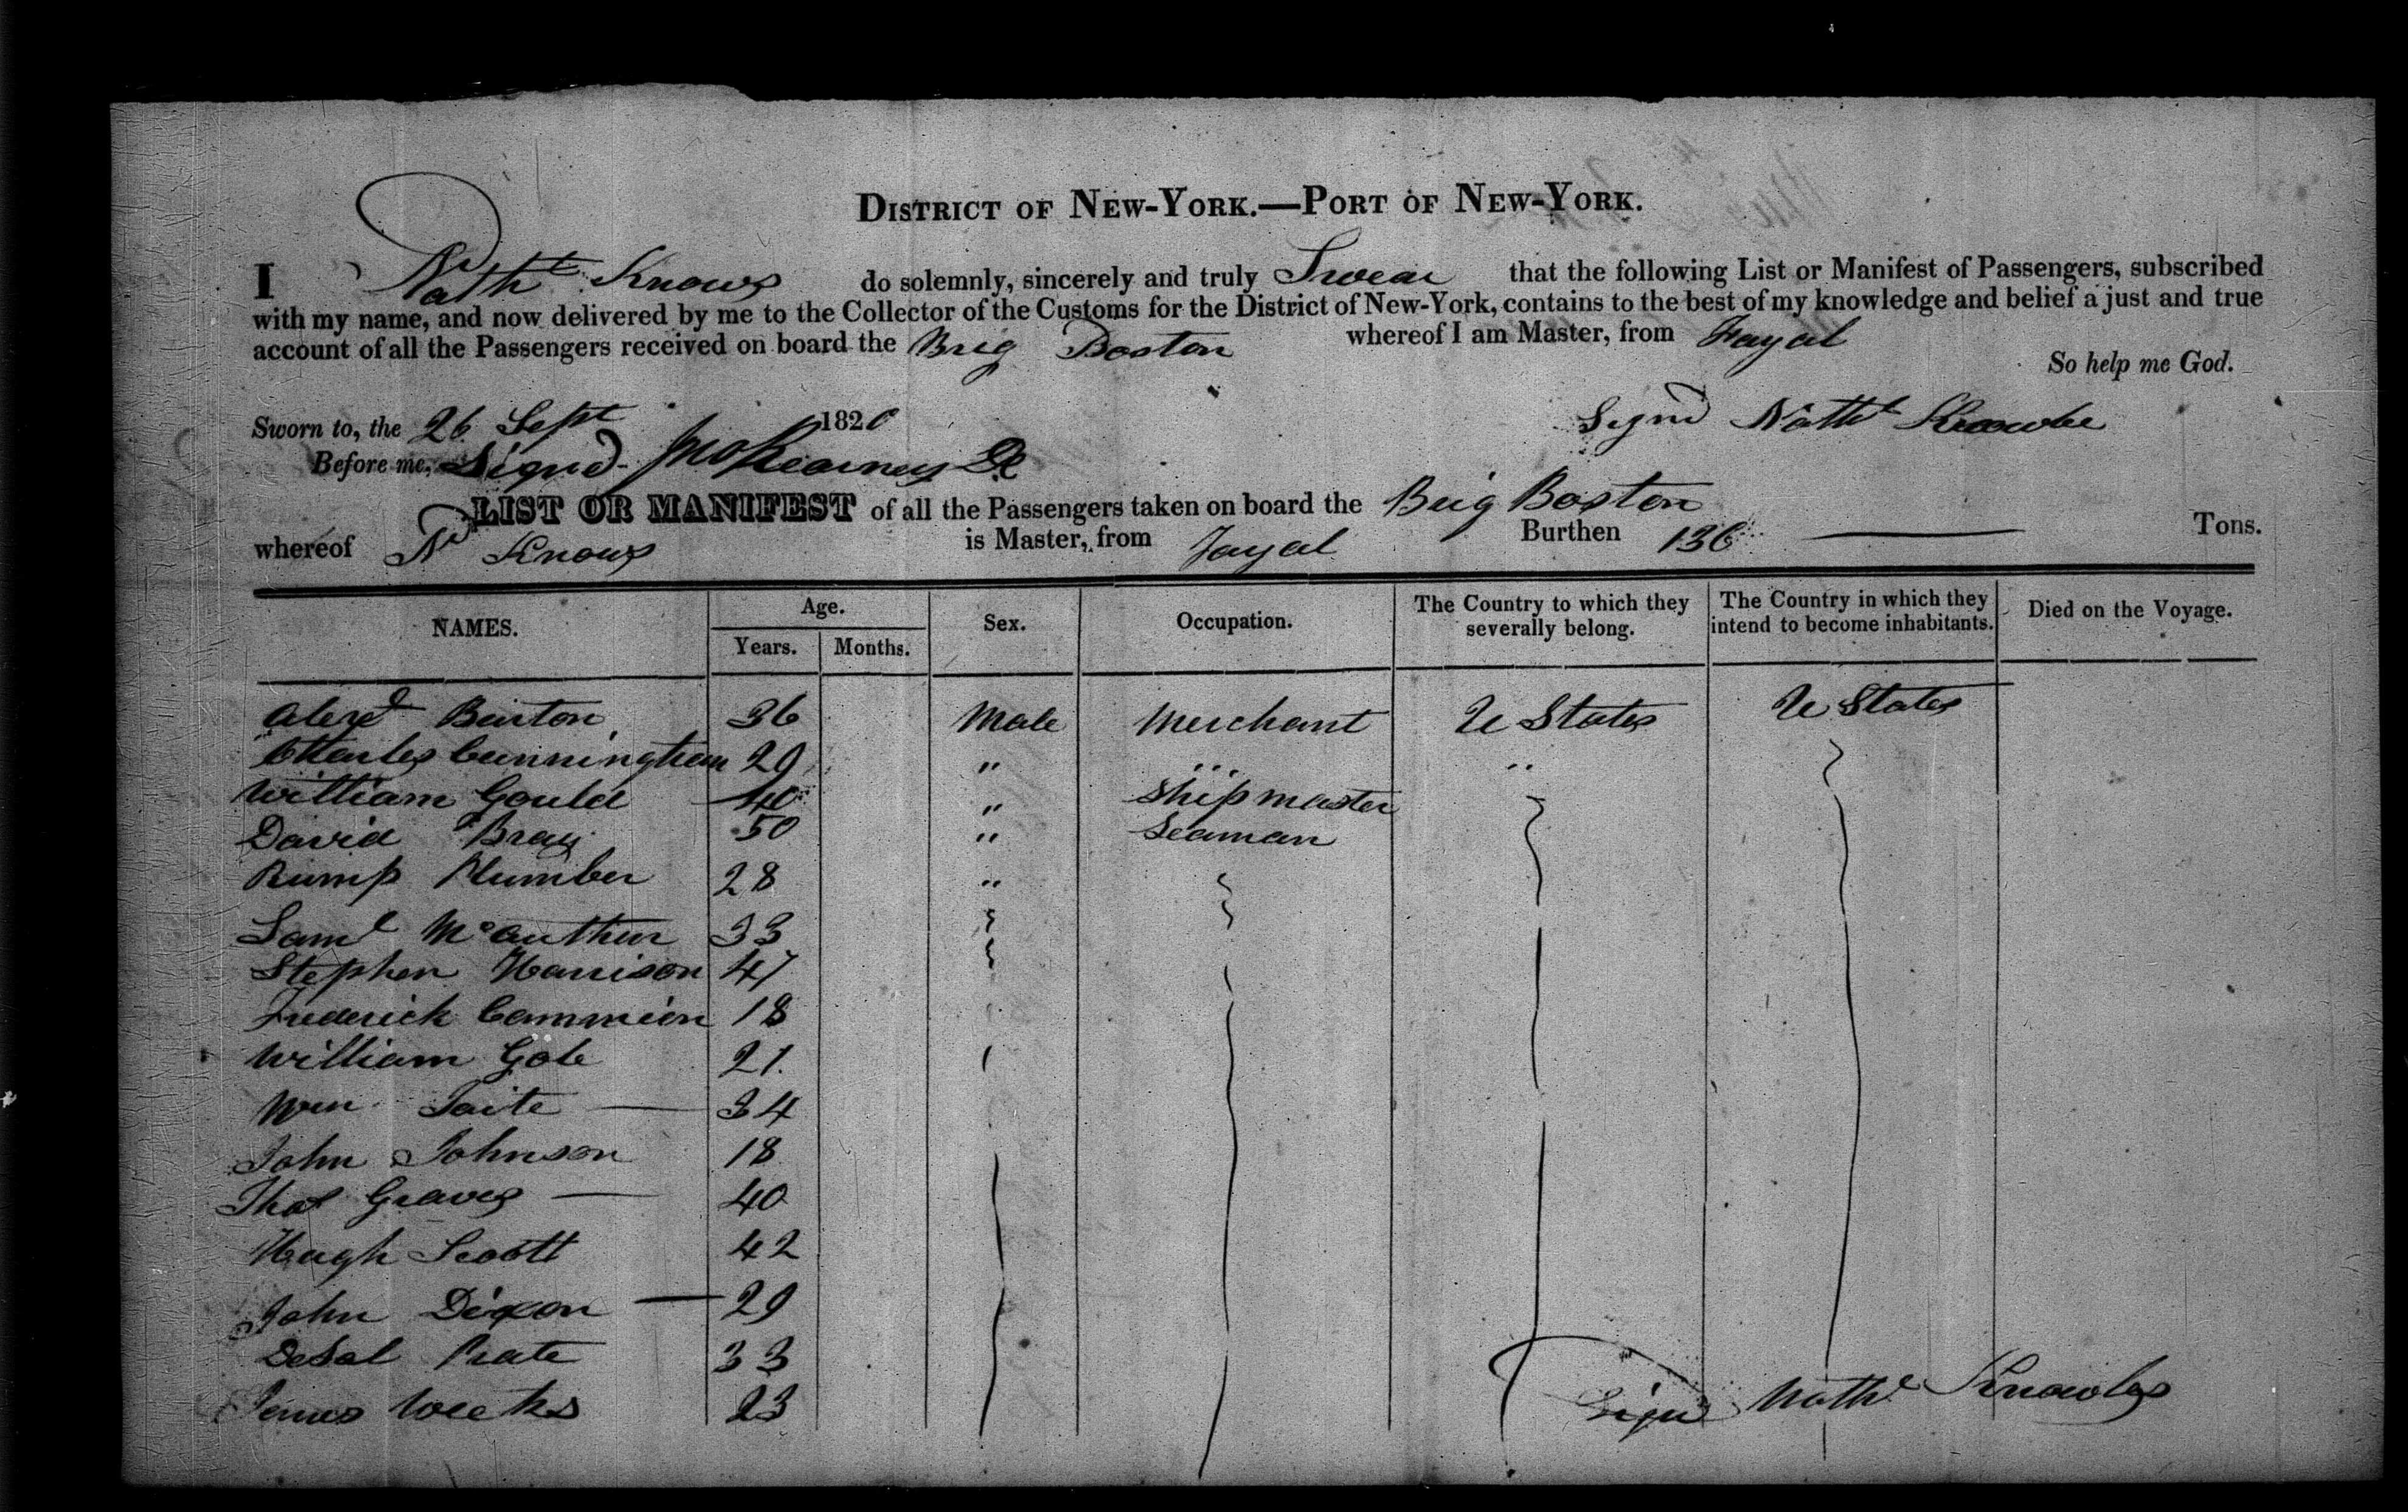 DISTRICT OF NEW-YORK.—PORT OF NEW-YORK.
I Nathl Knows do solemnly, sincerely and truly Swear that the following List or Manifest of Passengers, subscribed
with my name, and now delivered by me to the Collector of the Customs for the District of New-York, contains to the best of my knowledge and belief a just and true
account of all the Passengers received on board the Brig Boston whereof I am Master, from Fayal
So help me God.
Sworn to, the 26 Sept 1820 Signd Nathl
Before me, Signd Jno Kearney
LIST OR MANIFEST of all the Passengers taken on board the Brig Boston
whereof N Knows is Master, from Fayal Burthen 136 Tons.
NAMES. Age. Sex. Occupation. The Country to which they severally belong. The Country in which they intend to become inhabitants. Died on the Voyage.
Years. Months.
Alexd Burton 36 Male Merchant U States U States
Charles Cunningham 29 " " "
William Gould 40 " Shipmaster
David Bray 50 " Seaman
Rump Plumber 28 "
Saml McAuthur 33
Stephen Harrison 47
Frederick Cammion 18
William Gole 21.
Wm Taite — 34
John Johnson 18
Thos Graves — 40
Hugh Scott 42
John Dixon — 29
Prate 33
James Weeks 23
Sign Nathl Knowles